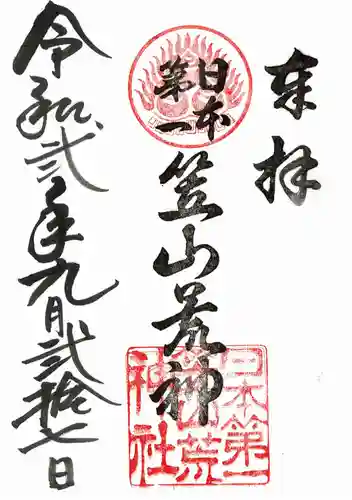 奉拝
日本
第一
笠山荒神
令和弐年九月弐拾七日
日本第一
笠山荒
神社